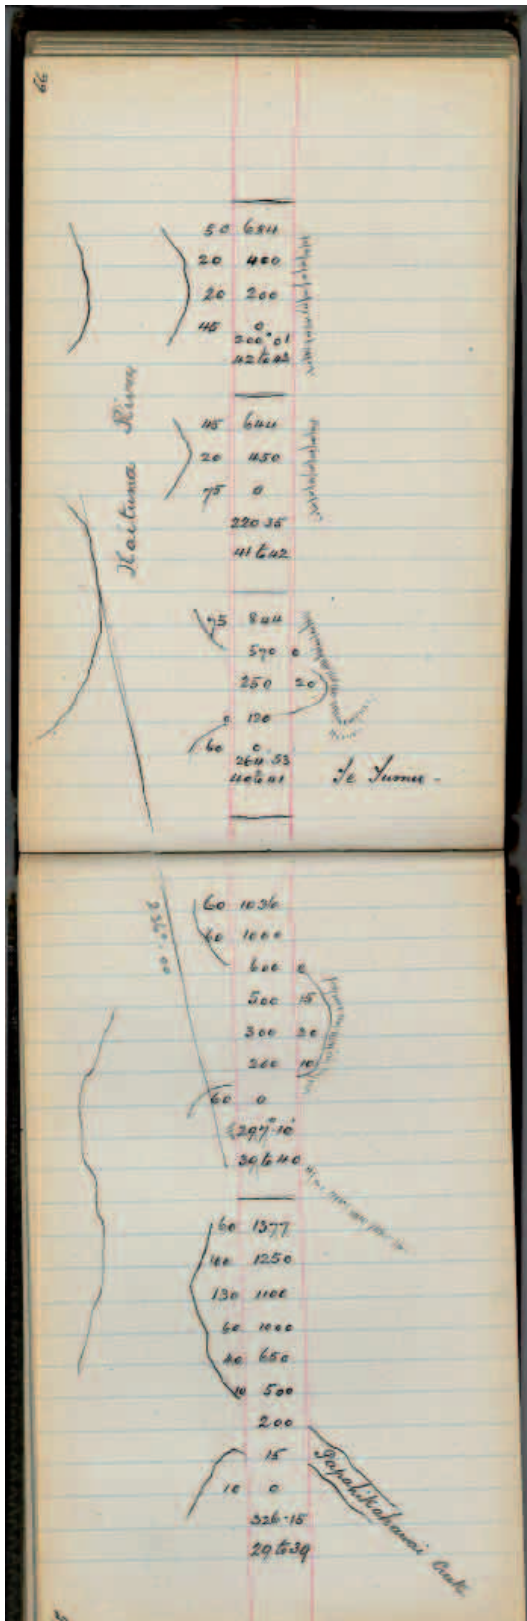 66
50 684
20 400
20 200
45 0
200°01
42 to 43
45 644
20 450
75 0
220 35
41 to 42
Kaituna River
75 844
570 0
250 20
0 120
60 0
264 53
40 to 41
Te Tumu -
60 1036
60 1000
600 0
500 15
300 20
200 10
60 0
297°10'
39 to 40
236°.00
60 1377
100 1250
130 1100
60 1000
40 650
10 500
200
15
10 0
326.15
29 to 39
Papahikahawai Creek